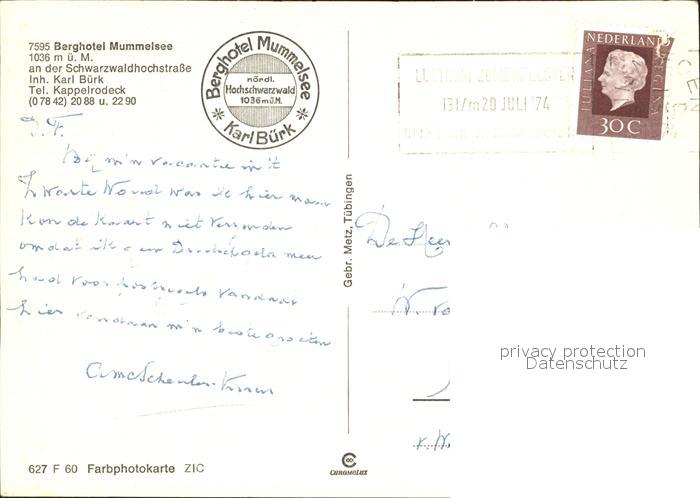 7595 Berghotel Mummelsee
1036 m ü. M.
an der Schwarzwaldhochstraße
Inh. Karl Bürk
Tel. Kappelrodeck
(0 78 42) 20 88 u. 22 90
Berghotel Mummelsee
nördl.
Hochschwarzwald
1036 m ü.M.
* Karl Bürk *
LUSTRUM ZOMERFEESTEN
13 t/m 20 JULI '74
NEDERLAND
JULIANA REGINA
30 C
J. F.
Bij m'n vacantie in 't
Zwarte Woud was ik hier maar
Kon de Kaart niet verzenden
omdat ik geen meer
had voor vandaar
hier vandaan m'n beste groeten
Gebr. Metz, Tübingen
De Heer
W.
privacy protection
Datenschutz
627 F 60 Farbphotokarte ZIC
CHROMOLUX